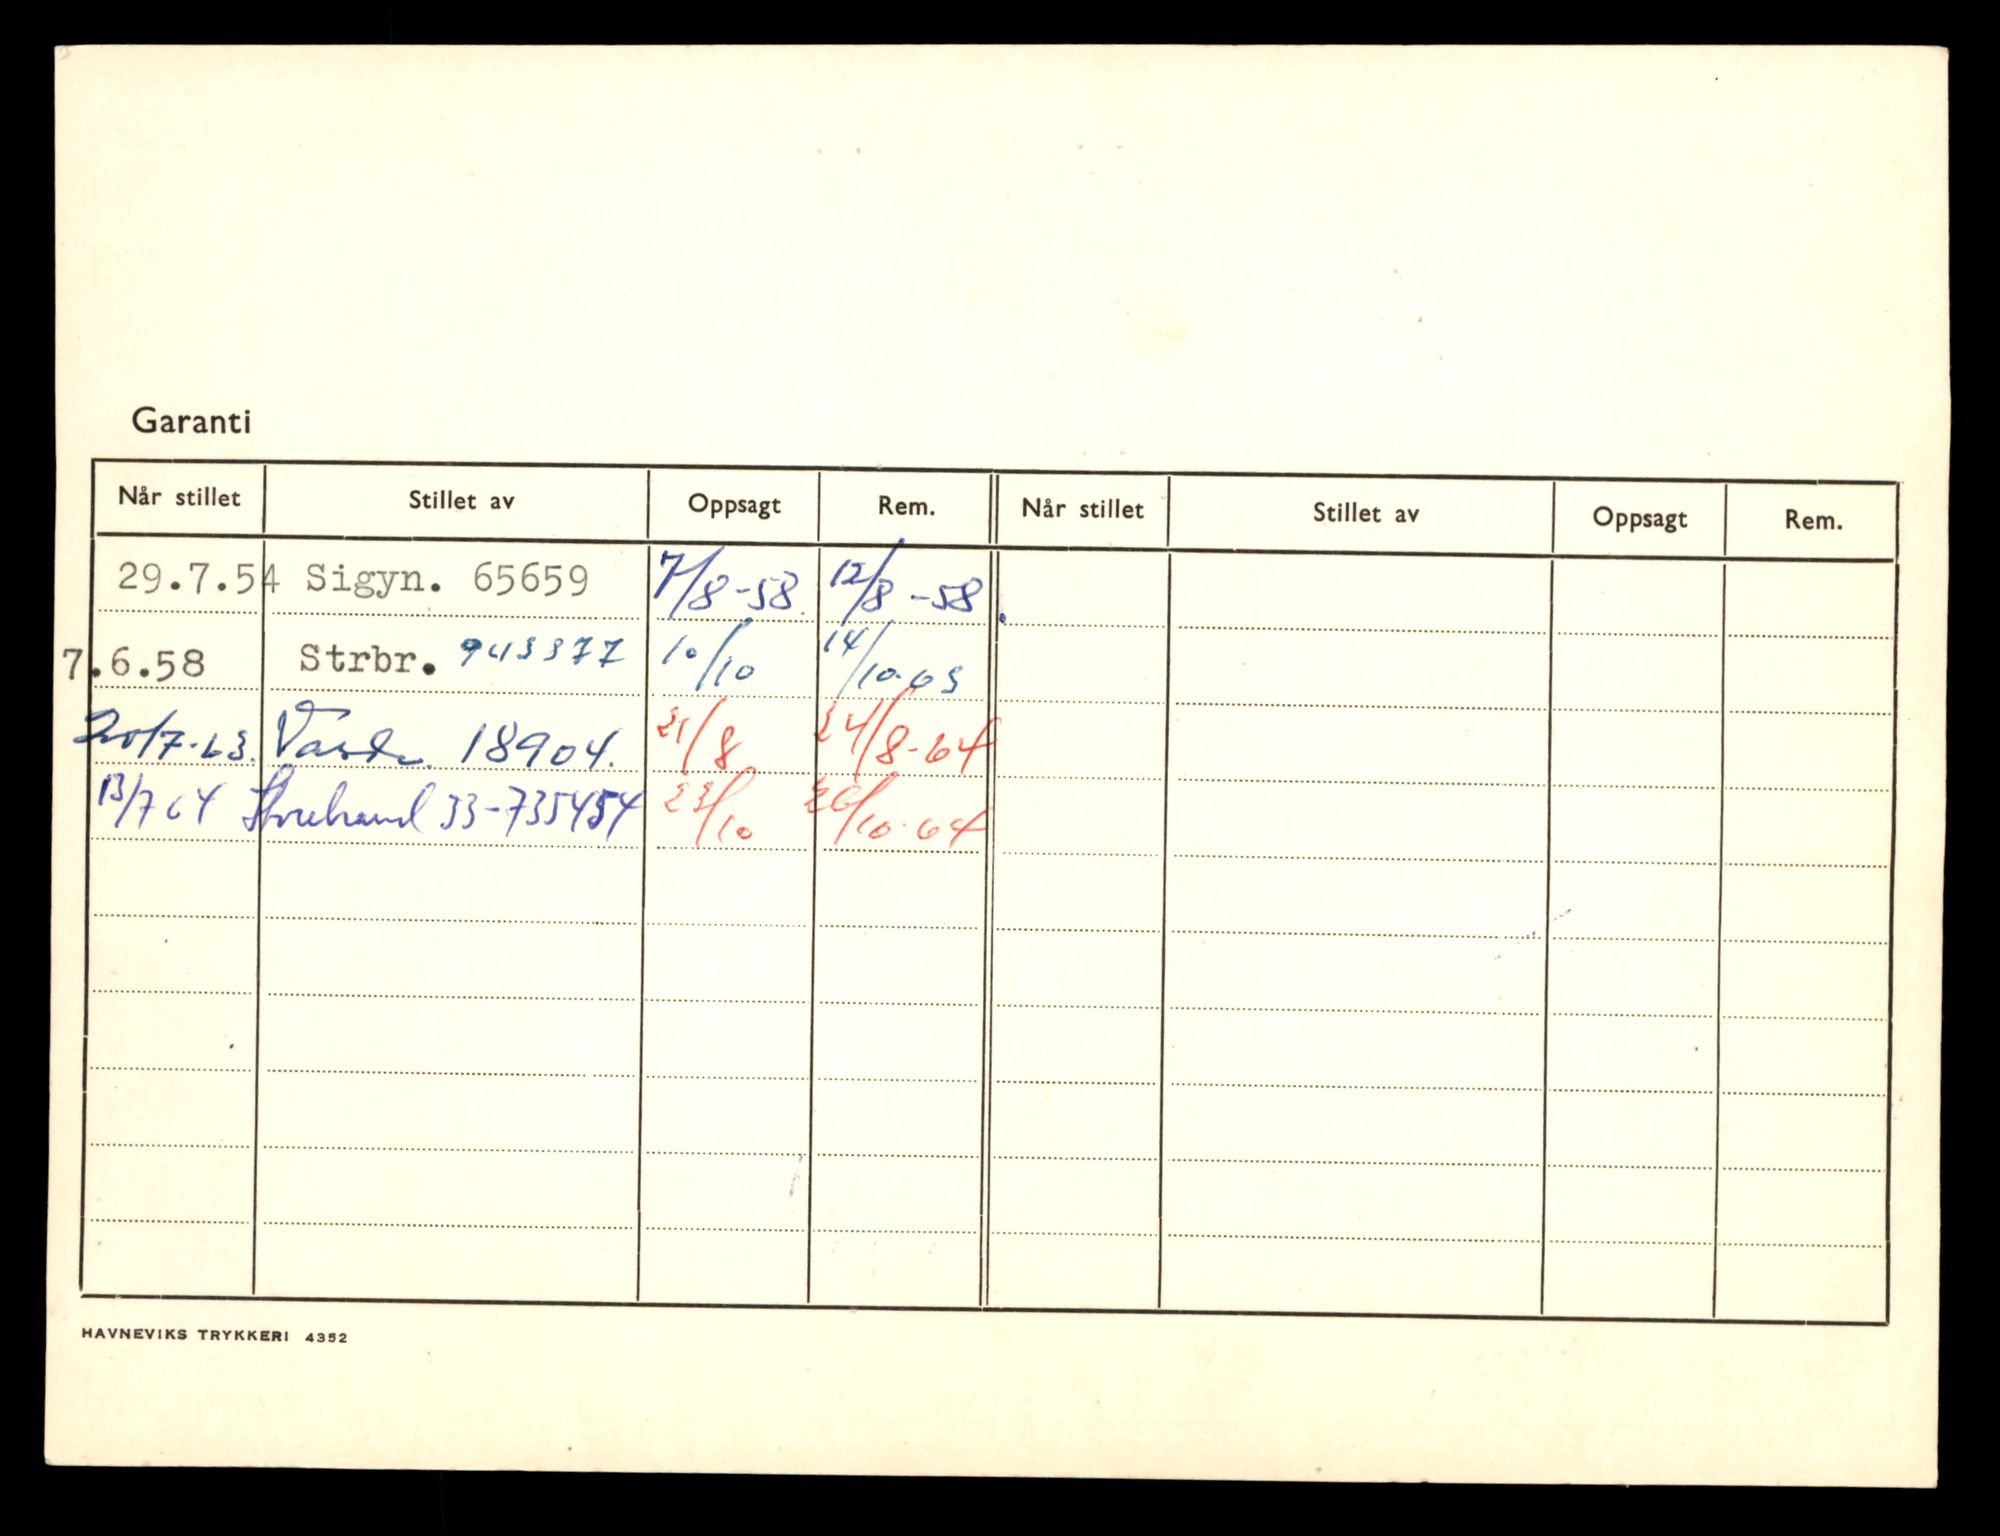 Garanti
Når stillet Stillet av Oppsagt Rem. Når stillet Stillet av Oppsagt Rem.
29.7.54 Sigyn. 65659 7/8-58. 12/8-58.
7.6.58 Strbr. 943377 10/10 14/10-63
20/7-63. 18904. 21/8 24/8-64
13/7 64 Storebrand 33-735454 23/10 26/10-64
HAVNEVIKS TRYKKERI 4352